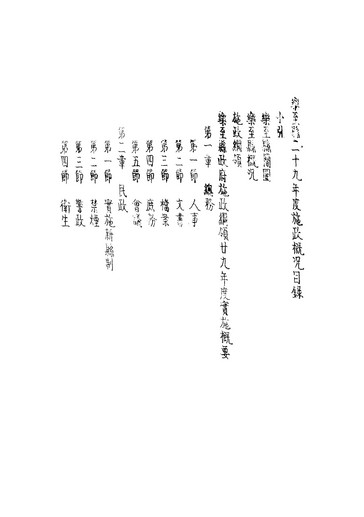 樂至縣二十九年度施政概況目錄
小引
樂至縣圖
樂至縣概況
施政綱領
樂至縣政府施政綱領廿九年度實施概要
第一章 總務
第一節 人事
第二節 文書
第三節 檔案
第四節 庶務
第五節 會議
第二章 民政
第一節 實施新縣制
第二節 禁煙
第三節 警政
第四節 衛生